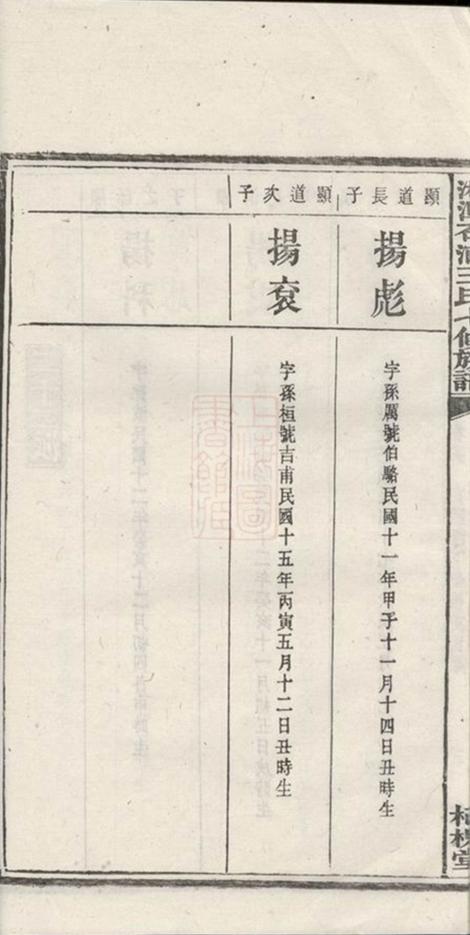 氏七修族譜
顯道長子
揚彪
字孫厲號伯駱民國十一年甲子十一月十四日丑時生
顯道次子
揚袞
字孫桓號吉甫民國十五年丙寅五月十二日丑時生
上海圖書館